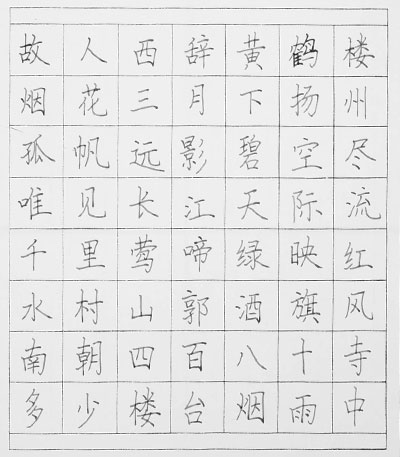 故人西辞黄鹤楼
烟花三月下扬州
孤帆远影碧空尽
唯见长江天际流
千里莺啼绿映红
水村山郭酒旗风
南朝四百八十寺
多少楼台烟雨中